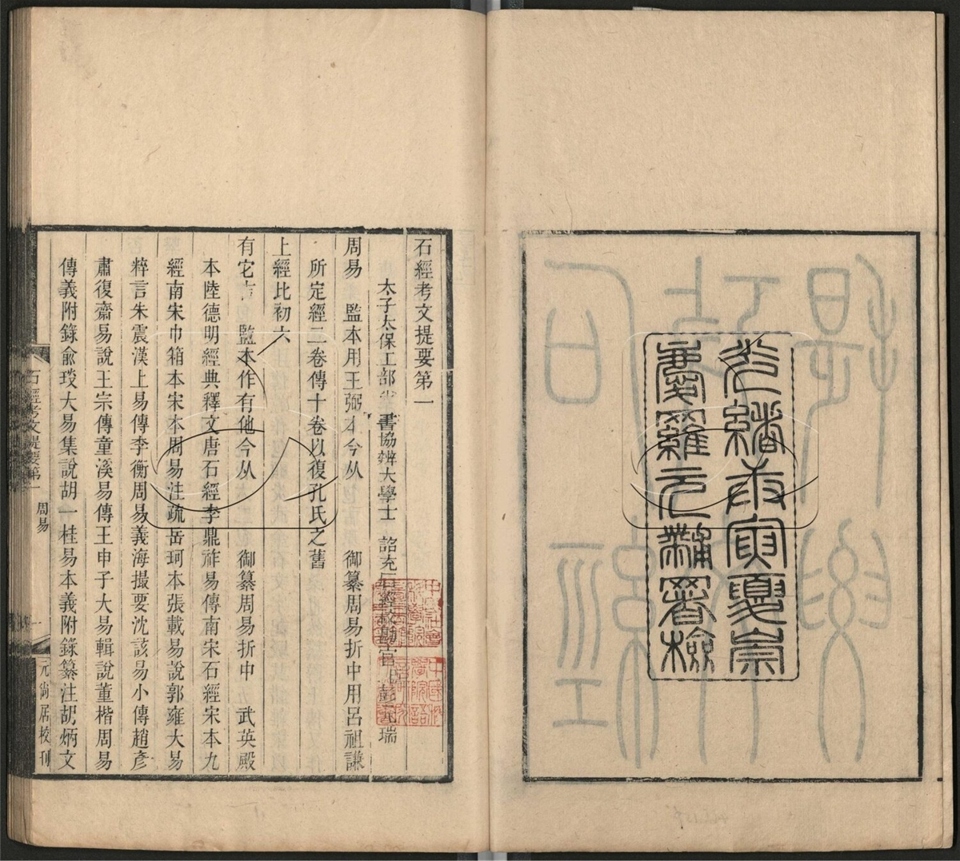 光緒庚寅夏崇
慶羅元黼署檢
石經考文提要第一
太子太保工部尚書協辦大學士 詔充 官臣彭元瑞
周易 監本用王弼本今从 御纂周易折中用呂祖謙
所定經二卷傳十卷以復孔氏之舊
上經比初六
有它吉 監本作有他今从 御纂周易折中 武英殿
本陸德明經典釋文唐石經李鼎祚易傳南宋石經宋本九
經南宋巾箱本宋本周易注疏岳珂本張載易說郭雍大易
粹言朱震漢上易傳李衡周易義海撮要沈該易小傳趙彥
肅復齋易說王宗傳童溪易傳王申子大易輯說董楷周易
傳義附錄俞琰大易集說胡一桂易本義附錄纂注胡炳文
石經考文提要第一 周易 一 元尚居校刊